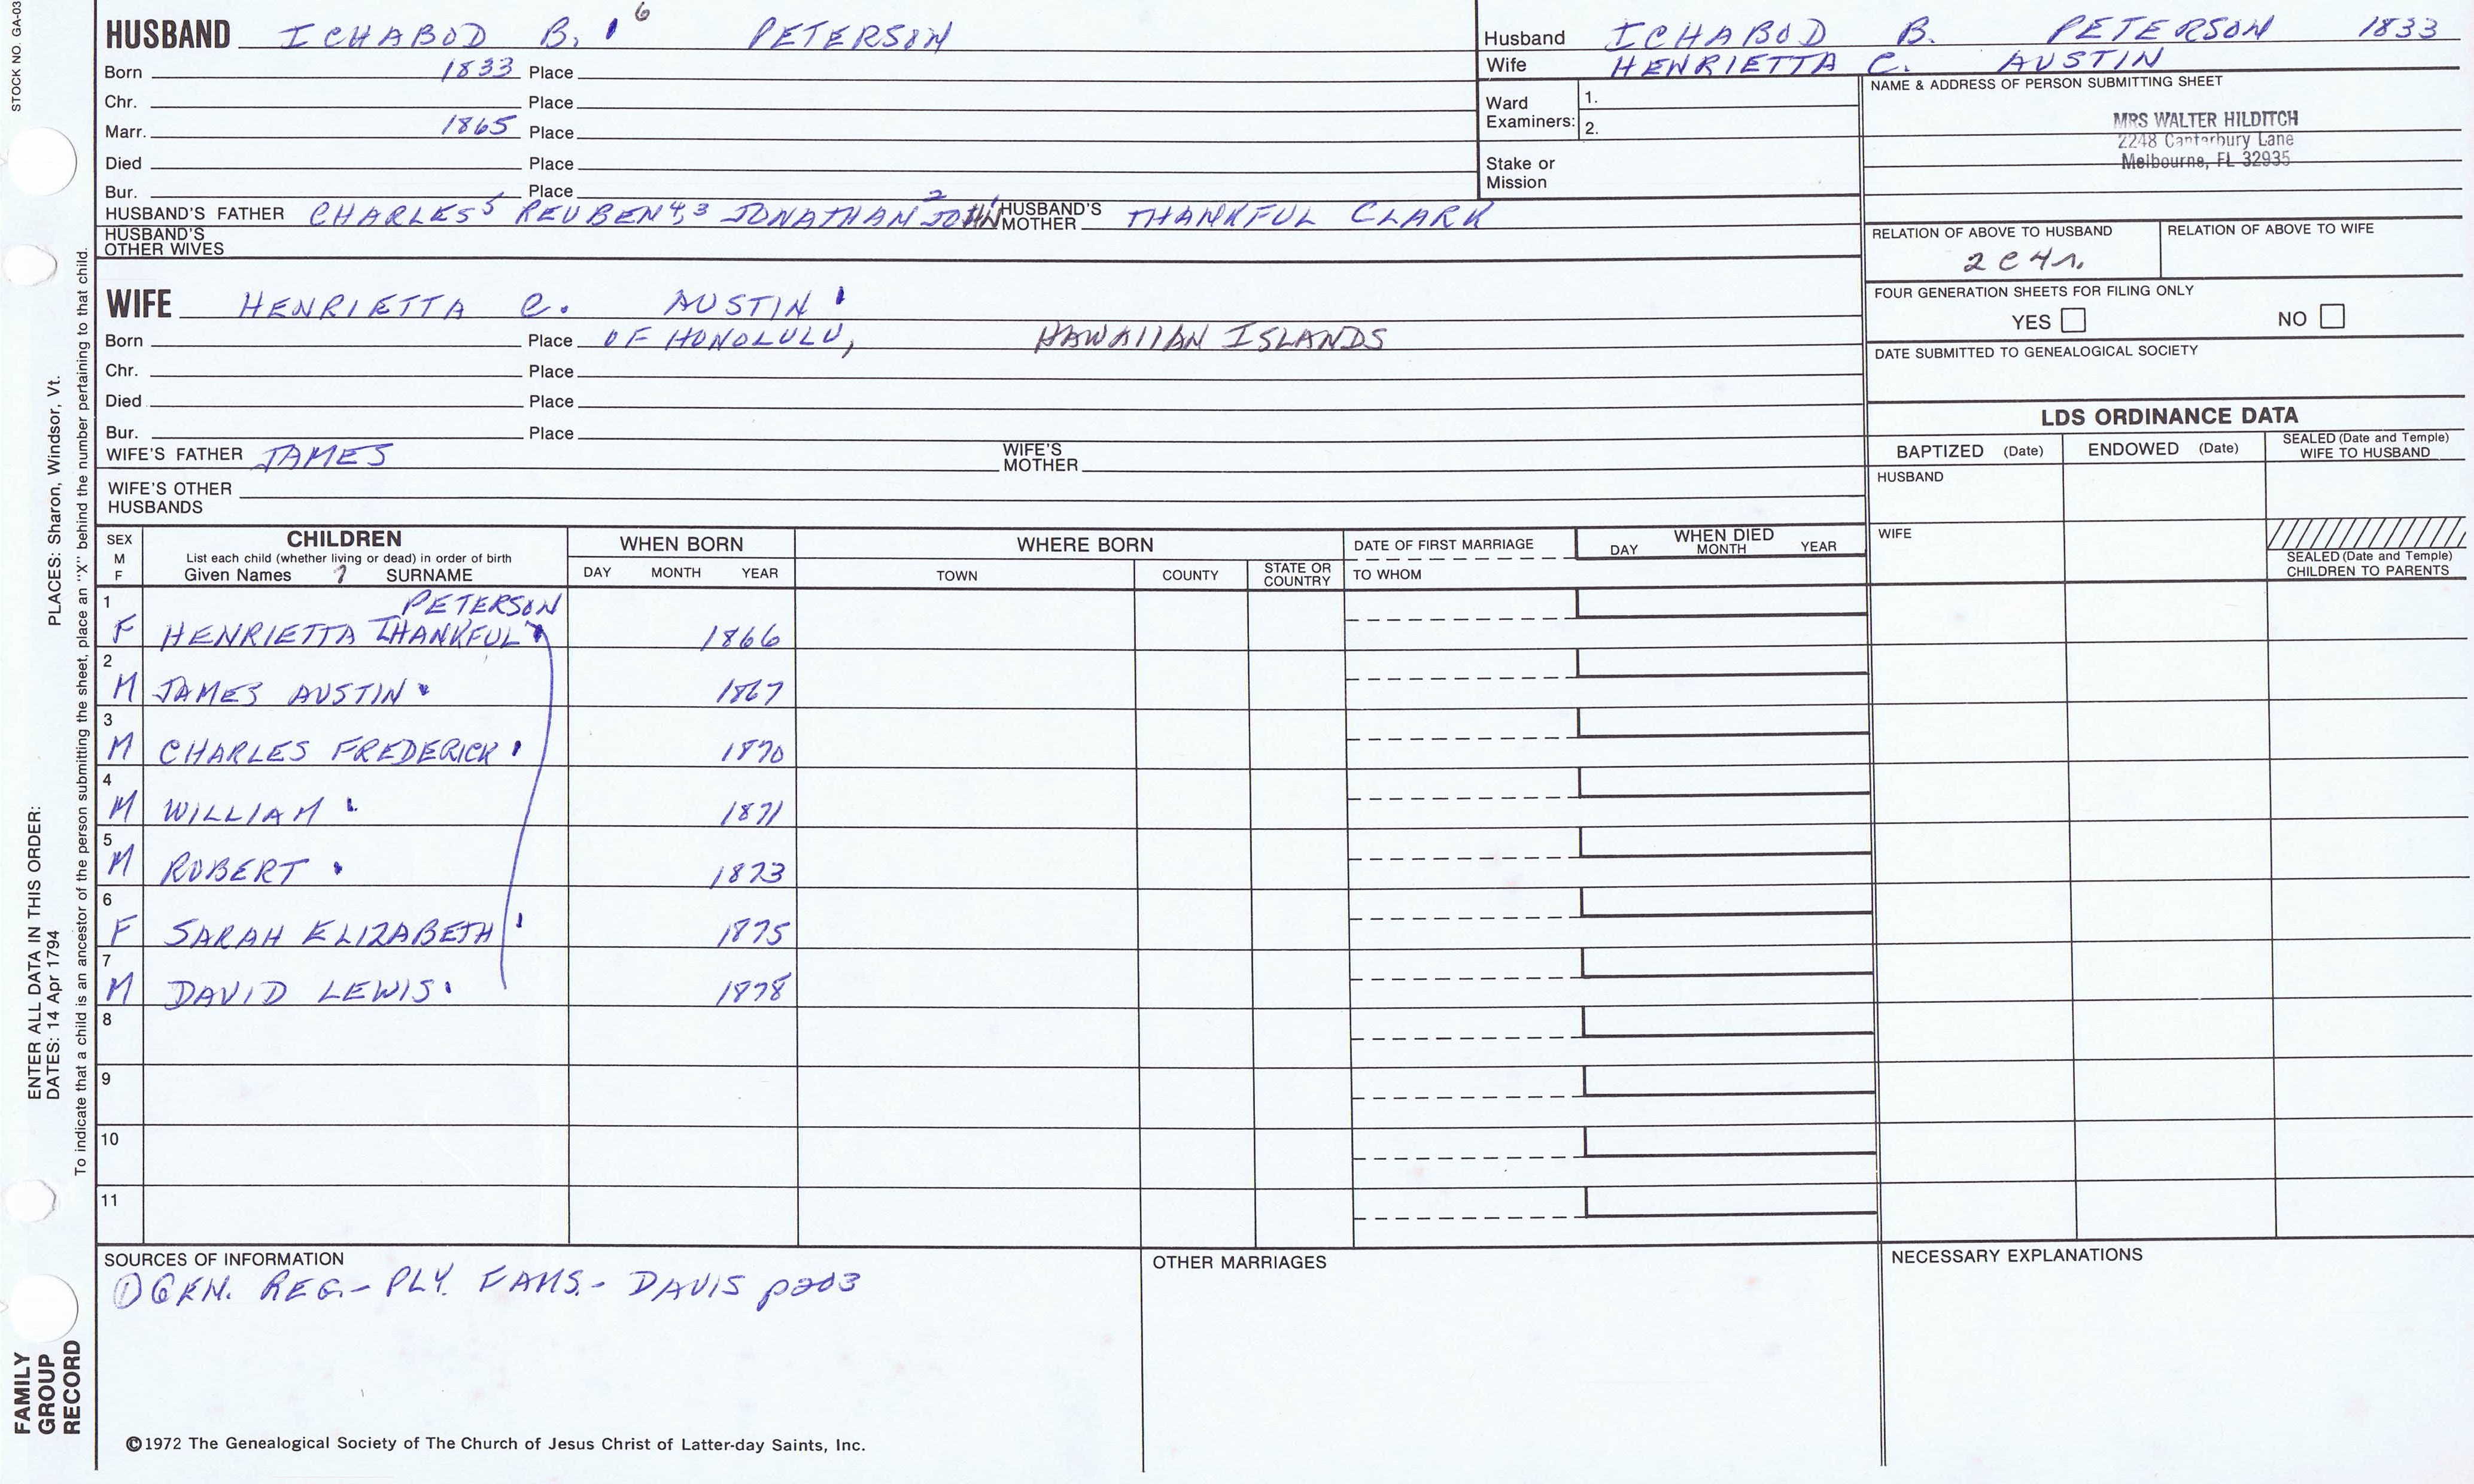 STOCK NO. GA-03
HUSBAND ICHABOD B. 6 PETERSON
Born 1833 Place
Chr. Place
Marr. 1865 Place
Died Place
Bur. Place
HUSBAND'S FATHER CHARLES5 REUBEN4,3 JONATHAN2 JOHN1 HUSBAND'S MOTHER THANKFUL CLARK
HUSBAND'S OTHER WIVES
Husband ICHABOD B. PETERSON 1833
Wife HENRIETTA C. AUSTIN
Ward Examiners: 1.
2.
Stake or Mission
NAME & ADDRESS OF PERSON SUBMITTING SHEET
MRS WALTER HILDITCH
2248 Canterbury Lane
Melbourne, FL 32935
RELATION OF ABOVE TO HUSBAND RELATION OF ABOVE TO WIFE
2C4r.
FOUR GENERATION SHEETS FOR FILING ONLY
YES NO
DATE SUBMITTED TO GENEALOGICAL SOCIETY
WIFE HENRIETTA C. AUSTIN
Born Place OF HONOLULU, HAWAIIAN ISLANDS
Chr. Place
Died Place
Bur. Place
WIFE'S FATHER JAMES WIFE'S MOTHER
WIFE'S OTHER HUSBANDS
LDS ORDINANCE DATA
BAPTIZED (Date) ENDOWED (Date) SEALED (Date and Temple) WIFE TO HUSBAND
HUSBAND
WIFE
SEALED (Date and Temple) CHILDREN TO PARENTS
SEX M F
CHILDREN
List each child (whether living or dead) in order of birth
Given Names SURNAME
WHEN BORN
DAY MONTH YEAR
WHERE BORN
TOWN COUNTY STATE OR COUNTRY
DATE OF FIRST MARRIAGE
TO WHOM
WHEN DIED
DAY MONTH YEAR
1 PETERSON
F HENRIETTA THANKFUL 1866
2
M JAMES AUSTIN 1867
3
M CHARLES FREDERICK 1870
4
M WILLIAM 1871
5
M ROBERT 1873
6
F SARAH ELIZABETH 1875
7
M DAVID LEWIS 1878
8
9
10
11
SOURCES OF INFORMATION
① GEN. REG.- PLY. FAMS.- DAVIS p203
OTHER MARRIAGES
NECESSARY EXPLANATIONS
©1972 The Genealogical Society of The Church of Jesus Christ of Latter-day Saints, Inc.
ENTER ALL DATA IN THIS ORDER:
DATES: 14 Apr 1794 PLACES: Sharon, Windsor, Vt.
To indicate that a child is an ancestor of the person submitting the sheet, place an "X" behind the number pertaining to that child.
FAMILY
GROUP
RECORD